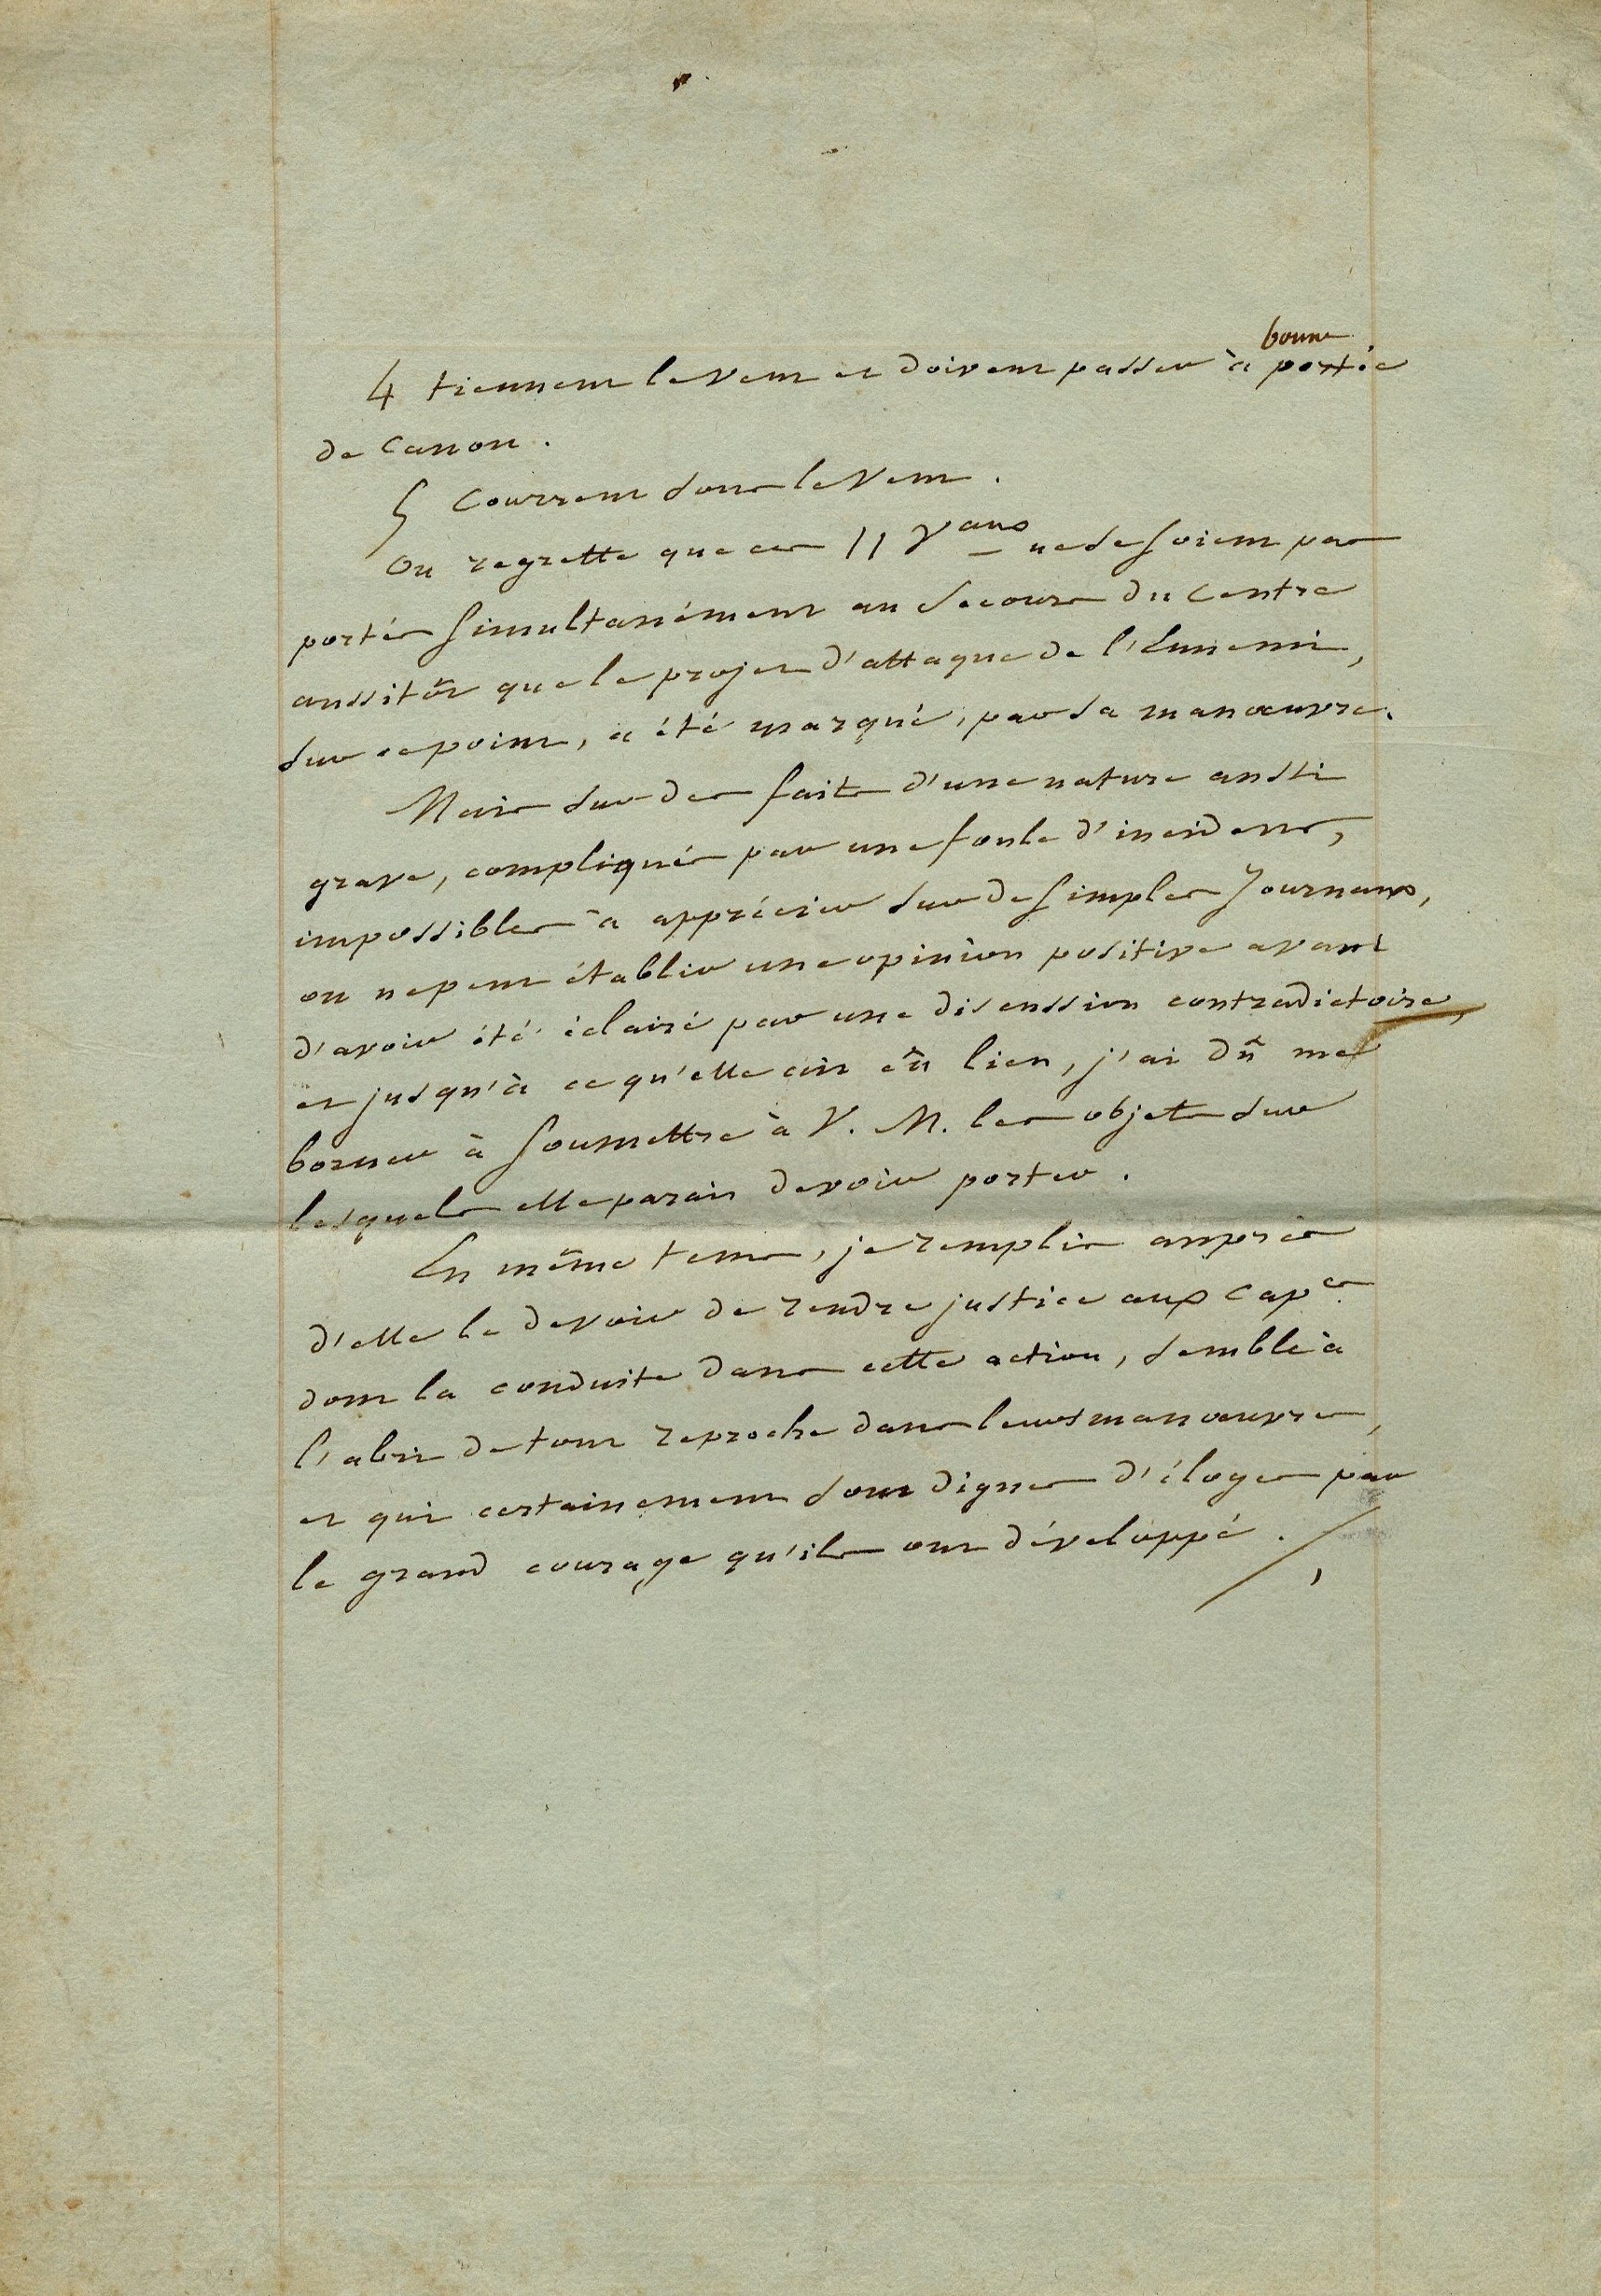 4 tiennent le vent et doivent passer à bonne portée
de Canon.
5 Courrent sous le Vent.
On regrette que ces 11 Vaux ne se soient pas
portés simultanément au secours du Centre
aussitôt que le projet d'attaque de l'Ennemi,
sur ce point, a été marqué, par sa manœuvre.
Mais sur des faits d'une nature aussi
grave, compliqués par une foule d'incidens,
impossibles à apprécier sur de simples Journaux,
on ne peut établir une opinion positive avant
d'avoir été éclairé par une discussion contradictoire,
et jusqu'à ce qu'elle ait eû lieu, j'ai dû me
borner à soumettre à V. M. les objets sur
lesquels elle parait devoir porter.
En même tems, je remplis auprès
d'elle le devoir de rendre justice aux Capes
dont la conduite dans cette action, semble à
l'abri de tout reproche dans leurs manœuvres,
et qui certainement sont dignes d'éloges par
le grand courage qu'ils ont développé.